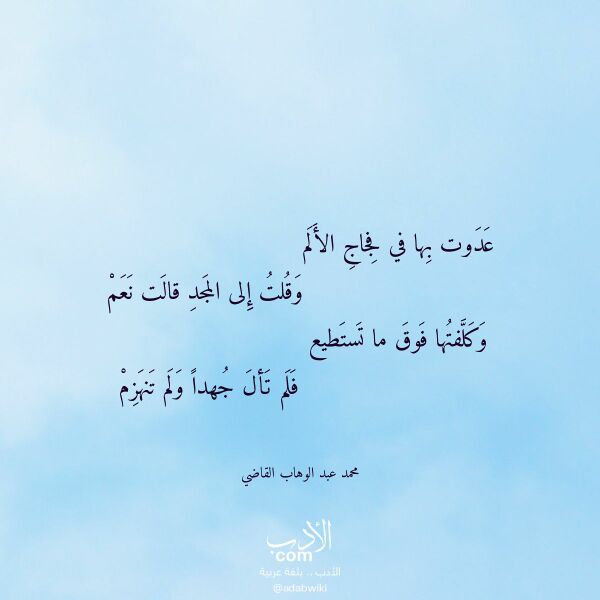 عَدَوت بِها في فِجاجِ الأَلَم
وَقُلتُ إِلى المَجدِ قالَت نَعَمْ
وَكَلَّفتُها فَوقَ ما تَستَطيع
فَلَم تَألَ جُهداً وَلَم تَنهَزِمْ
محمد عبد الوهاب القاضي
الأدب
com
الأدب .. بلغة عربية
@adabwiki